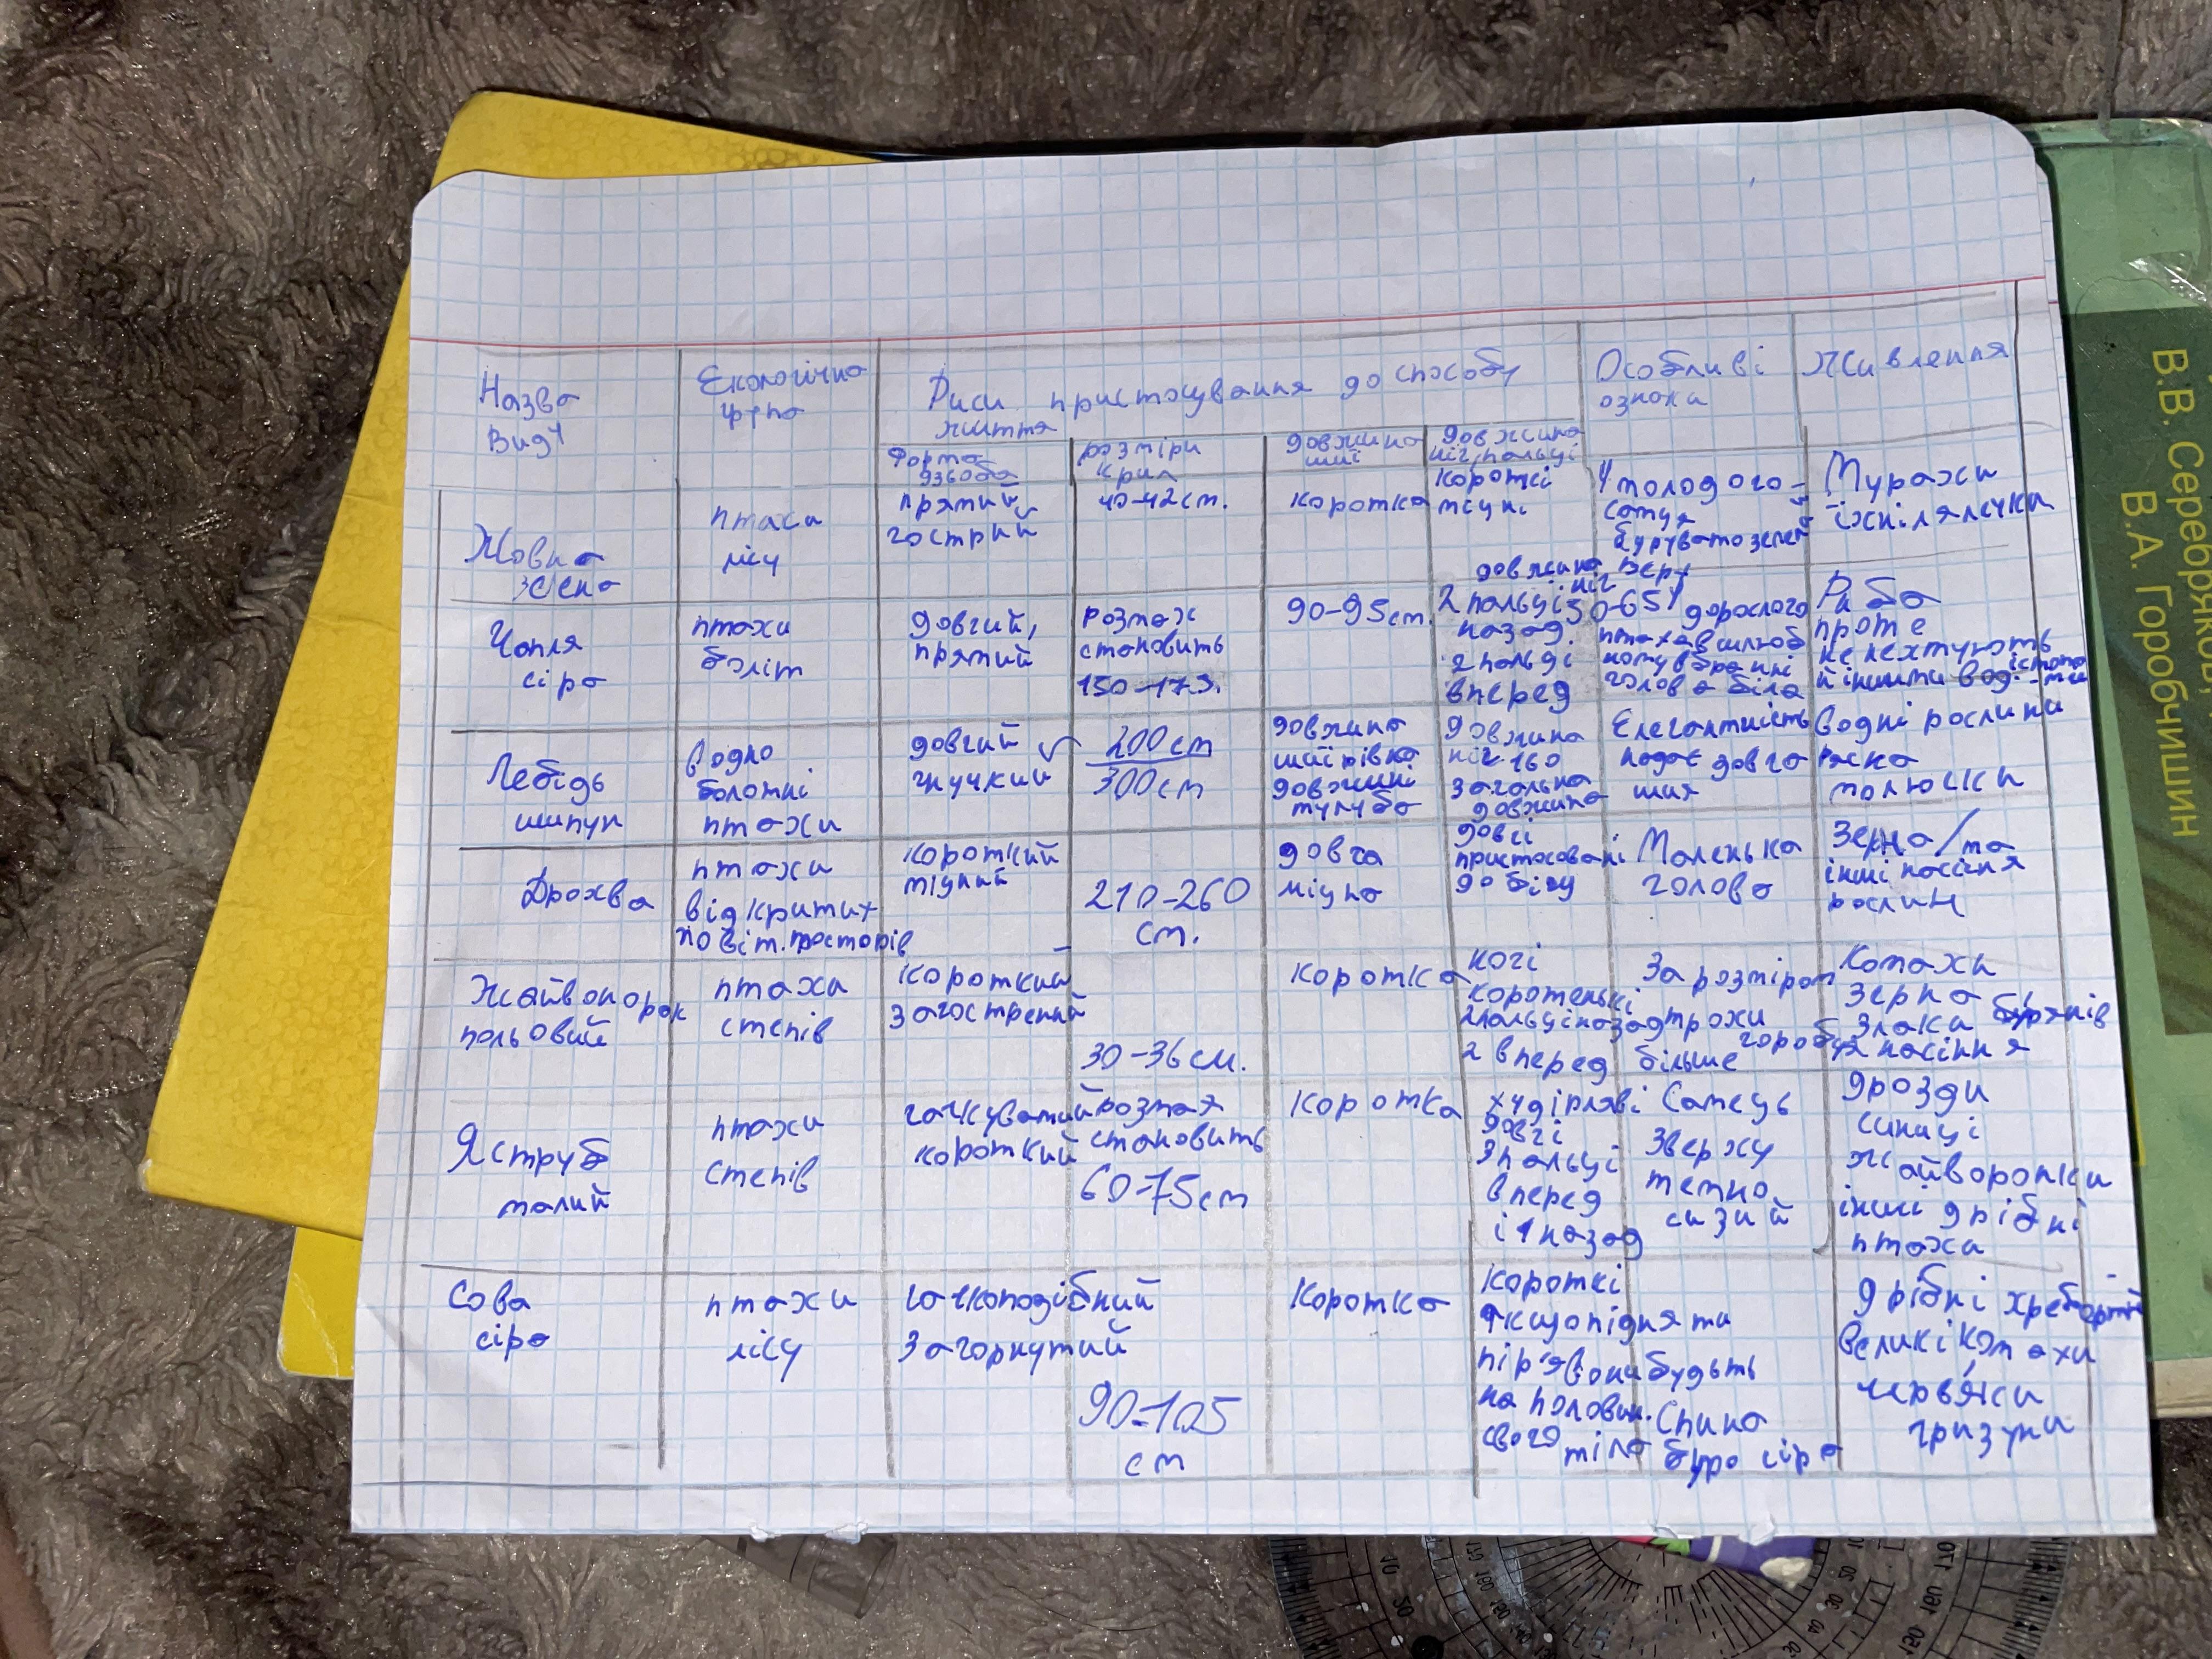 Назва
Виду
Екологічна
група
Риси пристосування до способу
життя
Особливі
ознака
Живлення
Форма
дзьоба
розміри
крил
довжина
шиї
довжина
ніг, пальці
Жовна
зелена
птахи
лісу
прямий,
гострий
40-42см.
коротка
короткі
міцні
У молодого
самця
Мурахи
їхні лялечки
Чапля
сіра
птахи
боліт
довгий,
прямий
розмах
становить
150-175.
90-95см.
довжина
ніг
2 пальці 50-65
назад.
2 пальці
вперед
У дорослого
птаха в шлюб
ному вбранні
голова біла
Риба
проте
не нехтують
й іншими вод. істота
-ми
Лебідь
шипун
Водно
болотні
птахи
довгий
гнучкий
200см
300см
довжина
шиї рівна
довжині
тулуба
довжина
ніг 160
загальна
довжина
Елегантність
надає довга
шия
Водні рослини
ряска
молюски
Дрохва
птахи
відкритих
повіт. просторів
короткий
міцний
210-260
см.
довга
міцна
довгі
пристосовані
до бігу
Маленька
голова
Зерно/та
інші насіння
рослин
Жайворонок
польовий
птахи
степів
короткий
загострений
30-36см.
коротка
ногі
коротенькі
2 пальці назад
2 вперед
За розміром
трохи
більше горобця
Комахи
зерно
злаки бурянів
насіння
Яструб
малий
птахи
степів
гачкуватий
короткий
розмах
становить
60-75см
коротка
худірляві
довгі
3 пальці
вперед
і 1 назад
Самець
зверху
темно
сизий
дрозди
синиці
жайворонки
інші дрібні
птахи
Сова
сіра
птахи
лісу
гачкоподібний
загорнутий
90-105
см
коротка
короткі
якщо підняти
пір'я вони будьть
на половин.
свого тіла
Спина
буро сіра
дрібні хребетні
великі комахи
черв'яки
гризуни
В.В. Серебряков,
В.А. Горобчишин